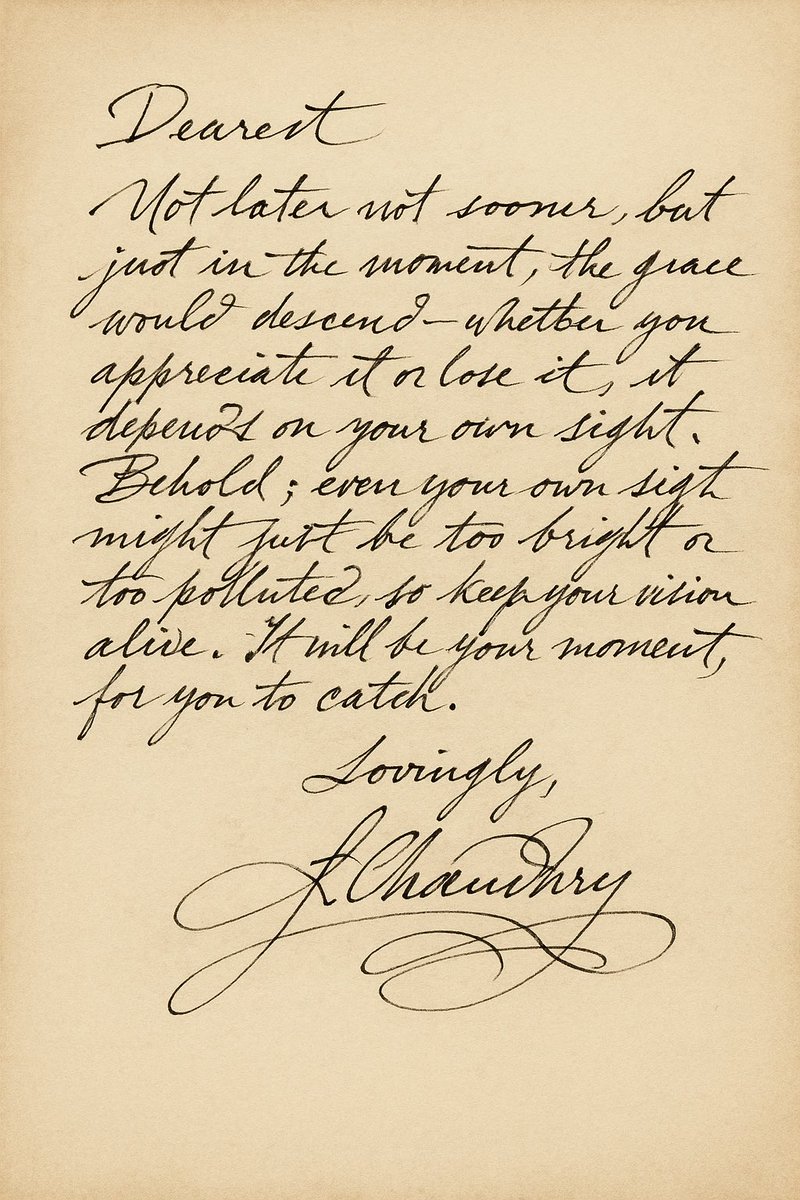 Dearest
Not later not sooner, but
just in the moment, the grace
would descend—whether you
appreciate it or lose it, it
depends on your own sight.
Behold; even your own sight
might just be too bright or
too polluted, so keep your vision
alive. It will be your moment,
for you to catch.
Lovingly,
Chaudhry